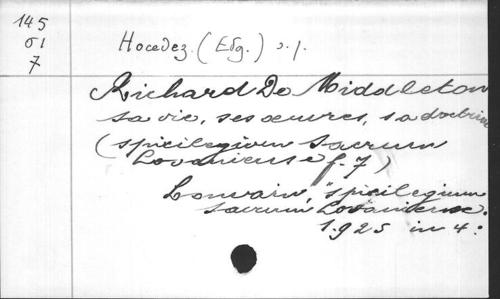 145
61
7
Hocedez (Edg.) s.j.
Richard De Middleton
sa vie, ses œuvres, sa doctrine
(spicilegium sacrum
Lovaniense f. 7)
Louvain, "spicilegium
sacrum Lovaniense.
1925 in 4: